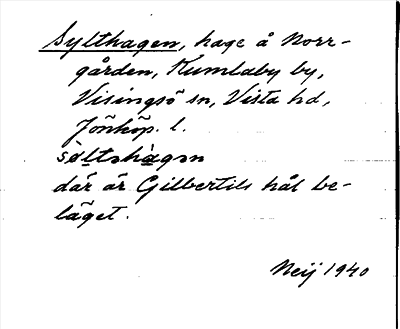 Sylthagen, hage å Norr-
gården, Kumlaby by,
Visingsö sn, Vista hd,
Jönköp. l.
sàltshàgən
där är Gilbertils hål be-
läget.
Neij 1940